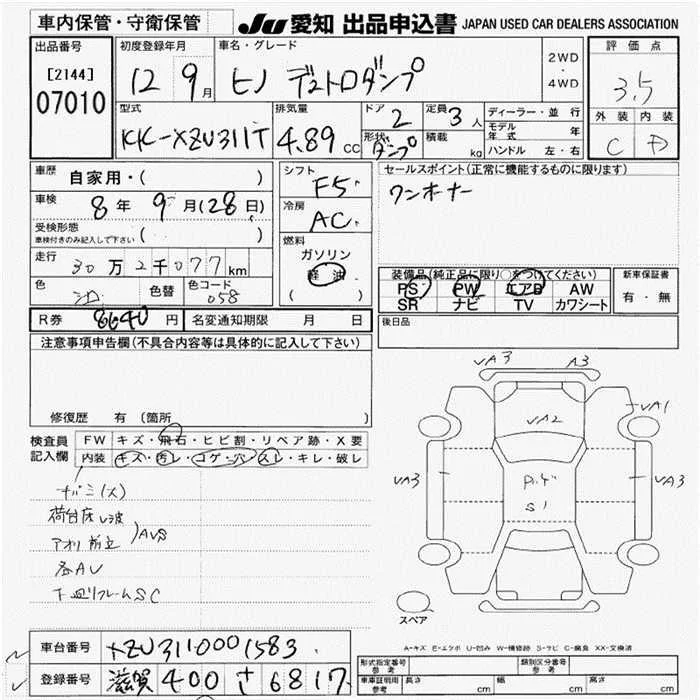 車内保管・守衛保管
JU 愛知 出品申込書 JAPAN USED CAR DEALERS ASSOCIATION
出品番号
[2144]
07010
初度登録年月
12 9月
車名・グレード
ヒノ デュトロダンプ
2WD
・
4WD
評価点
3.5
外装 内装
C D
型式
KK-XZU311T
排気量
4.89 cc
ドア
2
形状
ダンプ
定員
3人
積載
kg
ディーラー・並行
モデル年式 年
ハンドル 左・右
車歴
自家用・( )
車検
8年 9月(28日)
受検形態
車検付きのみ記入して下さい ( )
走行
30万2千077km
色
色替
色コード
058
R券 8640円
名変通知期限 月 日
シフト
F5
冷房
AC
燃料
ガソリン
軽油
( )
セールスポイント(正常に機能するものに限ります)
ワンオーナー
装備品(純正品に限り○をつけてください)
PS PW エアB AW
SR ナビ TV カワシート
新車保証書
有・無
後日品
注意事項申告欄(不具合内容等は具体的に記入して下さい)
修復歴 有(箇所
検査員
記入欄
FW キズ・飛石・ヒビ割・リペア跡・X要
内装 キズ・汚レ・コゲ・穴・スレ・キレ・破レ
荷台床
アオリ 前立 AUS
各AU
下廻リフレームSC
VA3 A3
VA1
VA2
VA3
S1
VA3
スペア
A-キズ E-エクボ U-凹み W-補修跡 S-サビ C-腐食 XX-交換済
車台番号 XZU3110001583
登録番号 滋賀 400 さ 6817
形式指定番号
参考
類別区分番号
参考
車庫証明用
参考
長さ cm
幅 cm
高さ cm